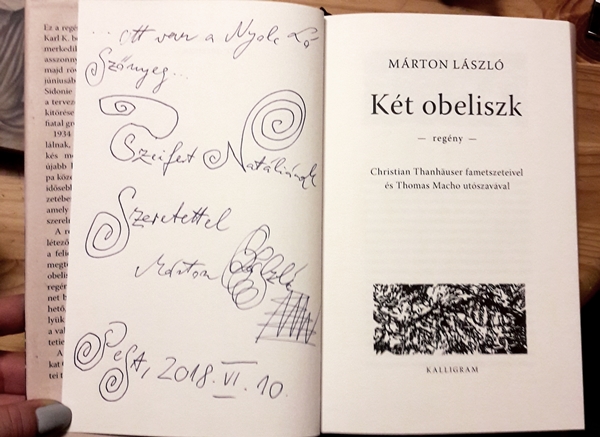 Ez a regé
Karl K. b
merkedik
asszonny
majd röv
júniusáb
Sidonie
a tervez
kitörése
fiatal gr
1934
lálnak,
kés m
újabb l
pa köze
idősebb
zetéber
amely
szerelm
A r
létező
a felic
megtö
obelis
regér
net b
hető.
lyük
a val
tetie
A
kat
tei t
... ott van a Nyolc Ló
Szőnyeg...
Szeifert Natáliának
Szeretettel
Márton László
Pest, 2018. VI. 10.
MÁRTON LÁSZLÓ
Két obeliszk
— regény —
Christian Thanhäuser fametszeteivel
és Thomas Macho utószavával
KALLIGRAM